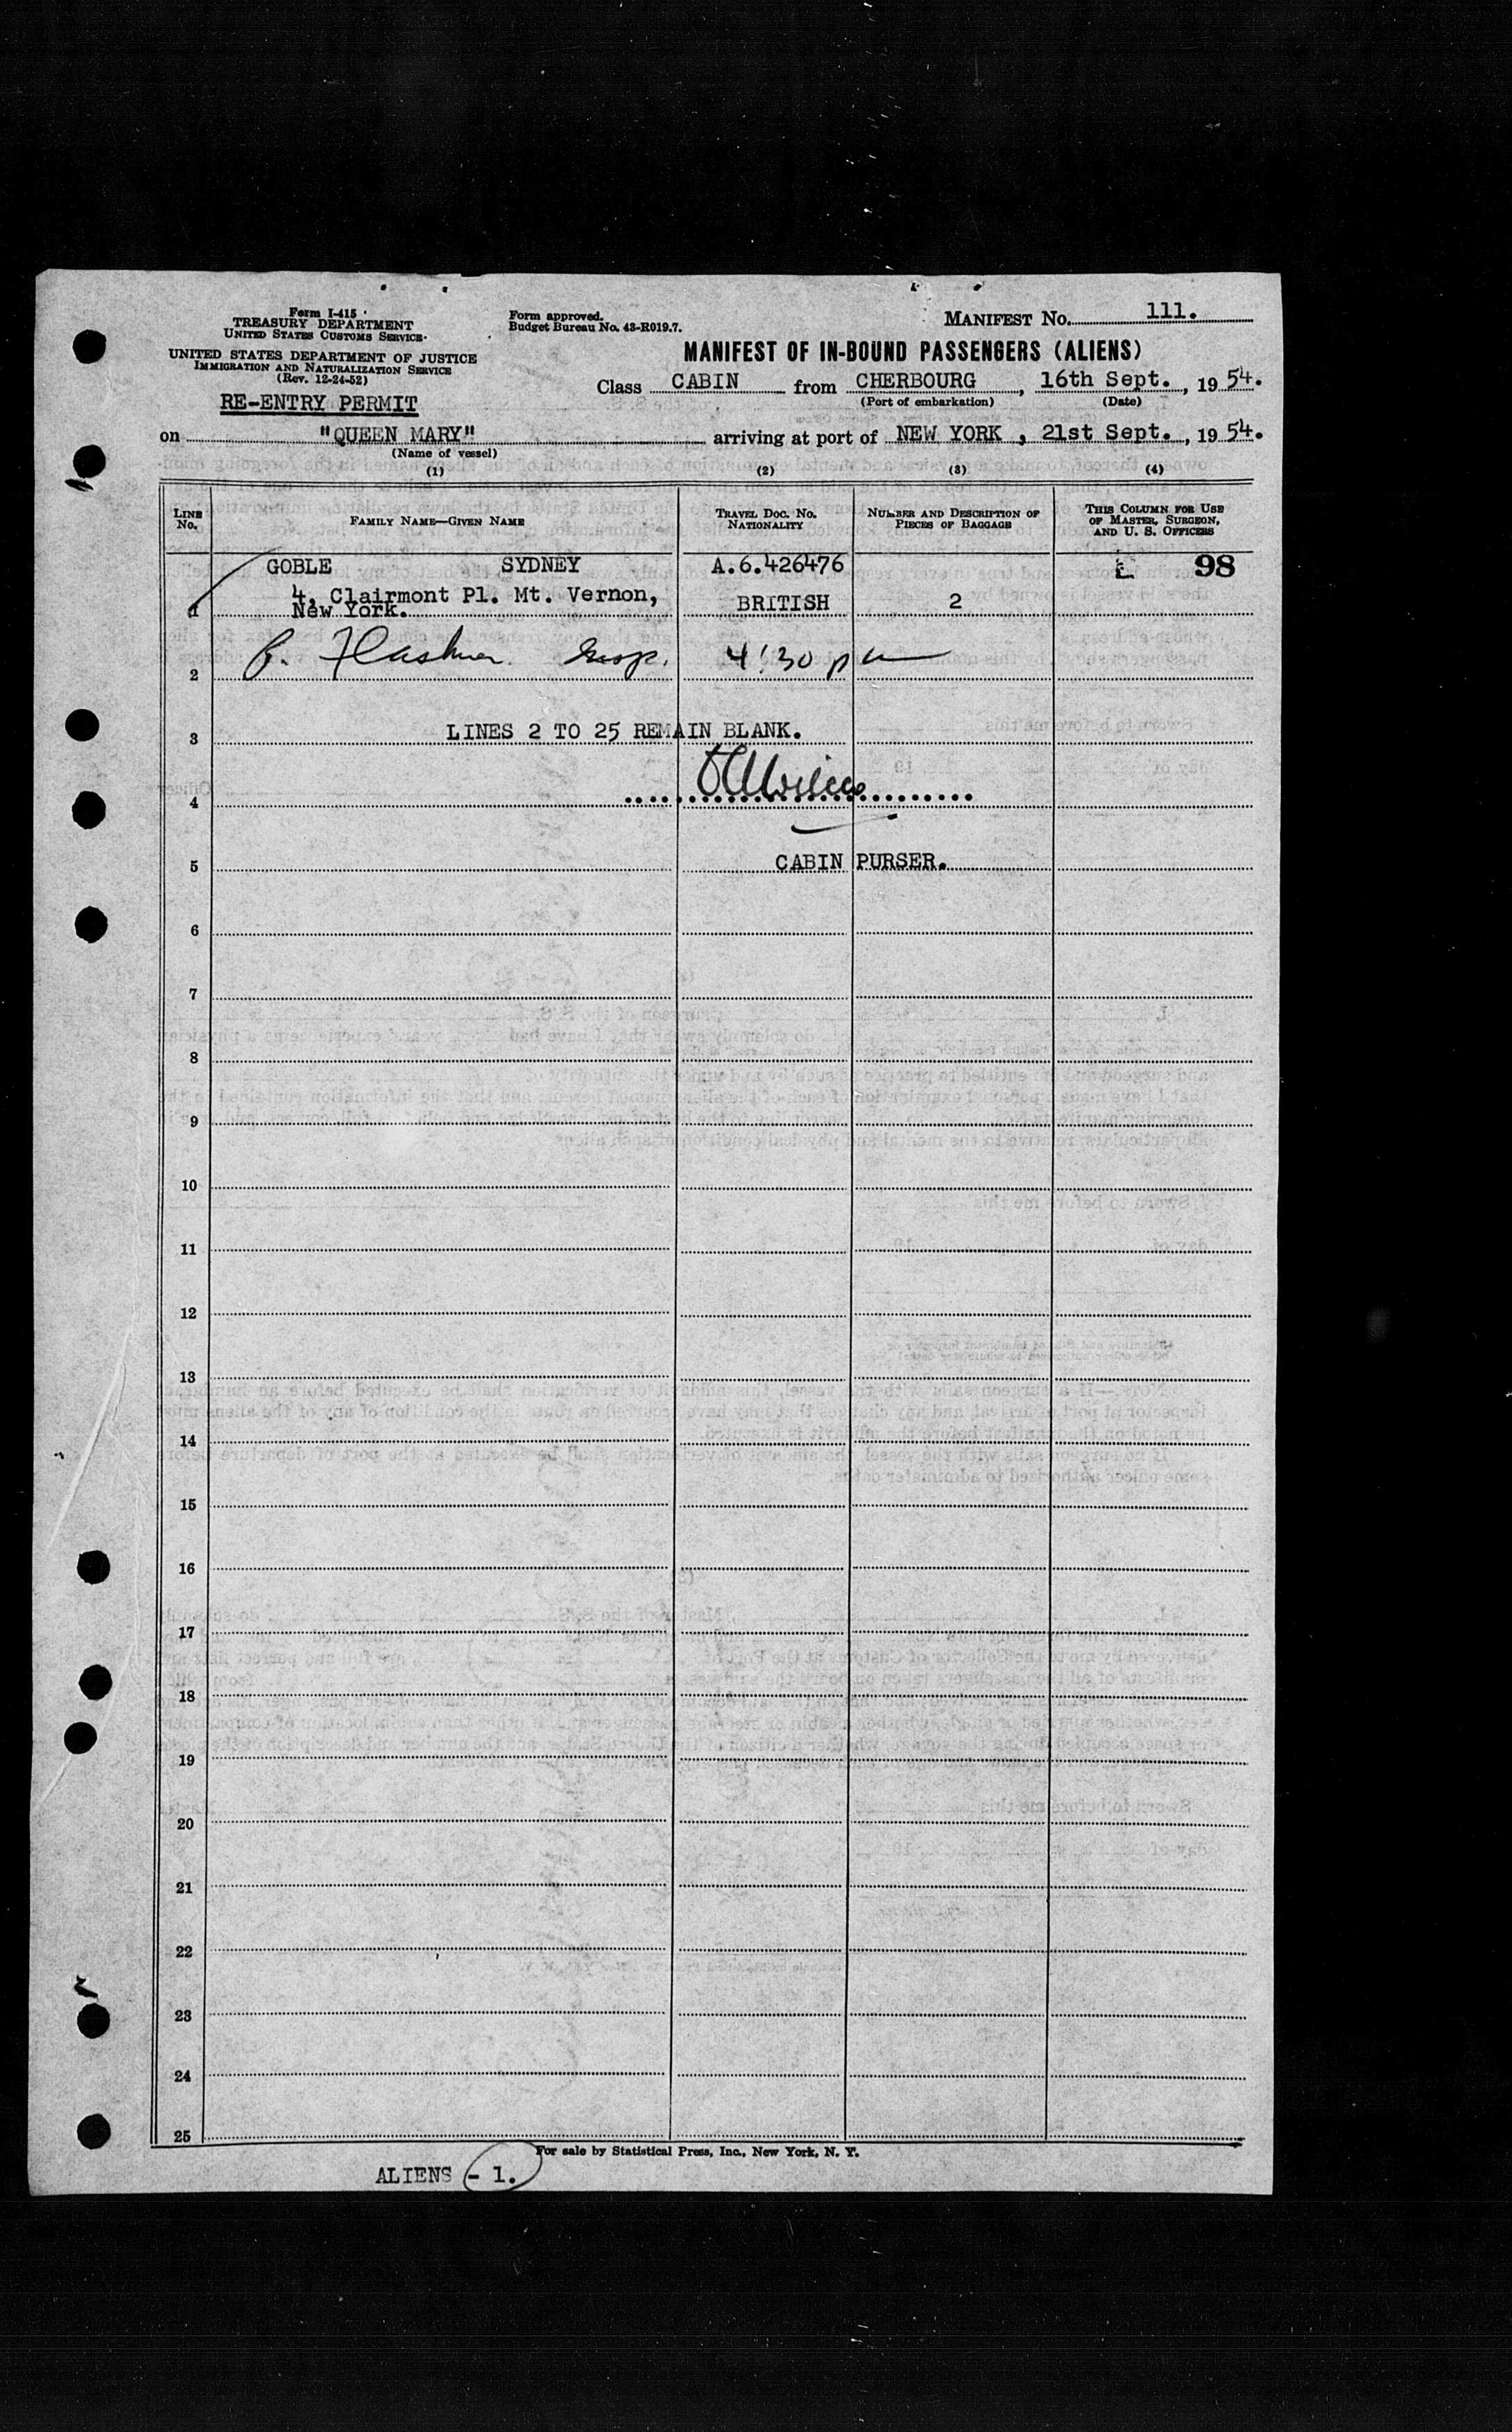 Form I-415
TREASURY DEPARTMENT
UNITED STATES CUSTOMS SERVICE
UNITED STATES DEPARTMENT OF JUSTICE
IMMIGRATION AND NATURALIZATION SERVICE
(Rev. 12-24-52)
RE-ENTRY PERMIT
Form approved.
Budget Bureau No. 43-R019.7.
MANIFEST No. 111.
MANIFEST OF IN-BOUND PASSENGERS (ALIENS)
Class CABIN from CHERBOURG, 16th Sept., 1954.
(Port of embarkation) (Date)
on "QUEEN MARY" arriving at port of NEW YORK, 21st Sept., 1954.
(Name of vessel)
(1) (2) (3) (4)
LINE No. FAMILY NAME—GIVEN NAME TRAVEL DOC. NO. NATIONALITY NUMBER AND DESCRIPTION OF PIECES OF BAGGAGE THIS COLUMN FOR USE OF MASTER, SURGEON, AND U. S. OFFICERS
GOBLE SYDNEY A.6.426476 L 98
4, Clairmont Pl. Mt. Vernon,
1 New York. BRITISH 2
2 4:30 pm
3 LINES 2 TO 25 REMAIN BLANK.
4
5 CABIN PURSER.
6
7
8
9
10
11
12
13
14
15
16
17
18
19
20
21
22
23
24
25
For sale by Statistical Press, Inc., New York, N. Y.
ALIENS - 1.